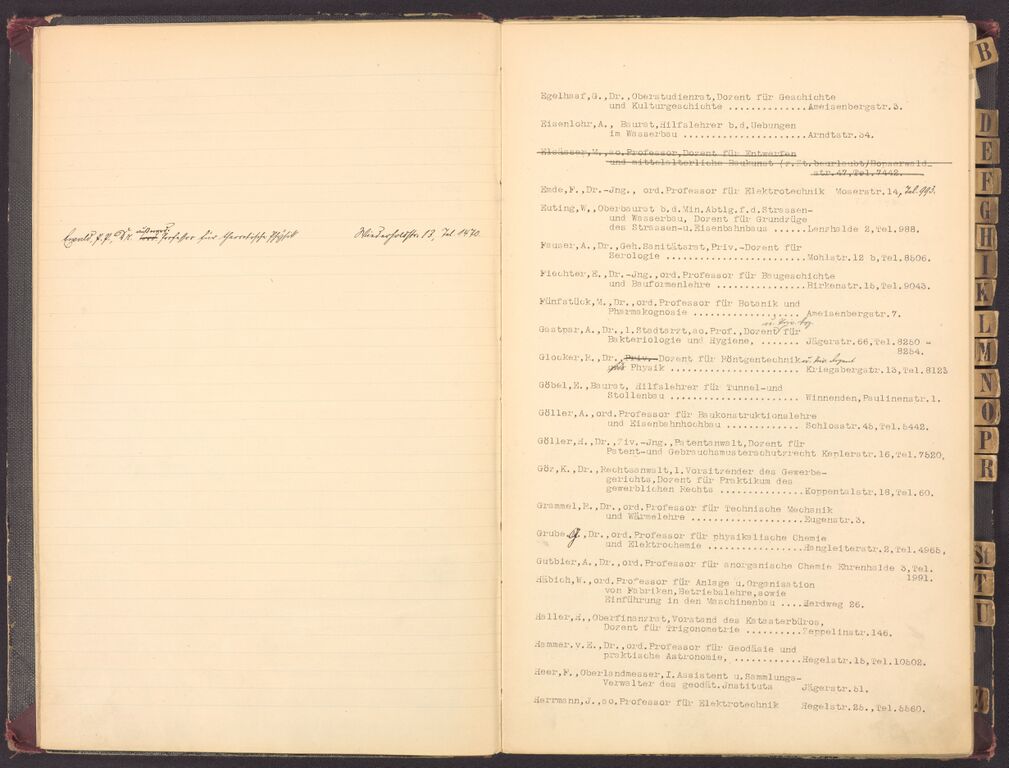 Ewald, P.P. Dr. außerord. Professor für theoretische Physik Wiederholdstr. 13, Tel. 1470.
Egelhaaf,G.,Dr.,Oberstudienrat,Dozent für Geschichte
und Kulturgeschichte ............Ameisenbergstr.3.
Eisenlohr,A., Baurat,Hilfslehrer b.d.Uebungen
im Wasserbau ..................Arndtstr.34.
Elsässer,M.,ao.Professor,Dozent für Entwerfen
und mittelalterliche Baukunst (z.Zt.beurlaubt/Hopserwald_
str.47,Tel.7442.
Emde,F.,Dr.-Jng., ord.Professor für Elektrotechnik Moserstr.14, Tel.993.
Euting,W.,Oberbaurat b.d.Min.Abtlg.f.d.Strassen-
und Wasserbau, Dozent für Grundzüge
des Strassen-u.Eisenbahnbaus ......Lenzhalde 2,Tel.988.
Fauser,A.,Dr.,Geh.Sanitätsrat,Priv.-Dozent für
Serologie .....................Mohlstr.12 b,Tel.8506.
Fiechter,E.,Dr.-Jng.,ord.Professor für Baugeschichte
und Bauformenlehre ...............Birkenstr.15,Tel.9043.
Fünfstück,M.,Dr.,ord.Professor für Botanik und
Pharmakognosie ................... Ameisenbergstr.7.
Gastpar,A.,Dr.,1.Stadtarzt,ao.Prof.,Dozent für
Bakteriologie und Hygiene, ....... Jägerstr.66,Tel.8250 -
8254.
Glocker,R.,Dr.,Priv.-Dozent für Röntgentechnik
Physik ...................... Kriegsbergstr.13,Tel.8123
Göbel,E.,Baurat, Hilfslehrer für Tunnel-und
Stollenbau ....................... Winnenden,Paulinenstr.1.
Göller,A.,ord.Professor für Baukonstruktionslehre
und Eisenbahnhochbau ............. Schlosstr.45,Tel.5442.
Göller,H.,Dr.,Ziv.-Jng.,Patentanwalt,Dozent für
Patent-und Gebrauchsmusterschutzrecht Keplerstr.16,Tel.7520,
Göz,K.,Dr.,Rechtsanwalt,1.Vorsitzender des Gewerbe-
gerichts,Dozent für Praktikum des
gewerblichen Rechts ...............Koppentalstr.18,Tel.60.
Grammel,R.,Dr.,ord.Professor für Technische Mechanik
und Wärmelehre ....................Eugenstr.3.
Grube,G.,Dr.,ord.Professor für physikalische Chemie
und Elektrochemie .................Hangleiterstr.2,Tel.4965,
Gutbier,A.,Dr.,ord.Professor für anorganische Chemie Ehrenhalde 3,Tel.
1991.
Häbich,W.,ord.Professor für Anlage u.Organisation
von Fabriken,Betriebslehre,sowie
Einführung in den Maschinenbau ....Herdweg 26.
Haller,H.,Oberfinanzrat,Vorstand des Katasterbüros,
Dozent für Trigonometrie ..........Zeppelinstr.146.
Hammer,v.E.,Dr.,ord.Professor für Geodäsie und
praktische Astronomie, ............Hegelstr.15,Tel.10502.
Heer,F.,Oberlandmesser,I.Assistent u.Sammlungs-
Verwalter des geodät.Jnstituts Jägerstr.51.
Herrmann,J.,ao.Professor für Elektrotechnik Hegelstr.25.,Tel.5560.
B
D
E
F
G
H
I
K
L
M
N
O
P
R
St
T
U